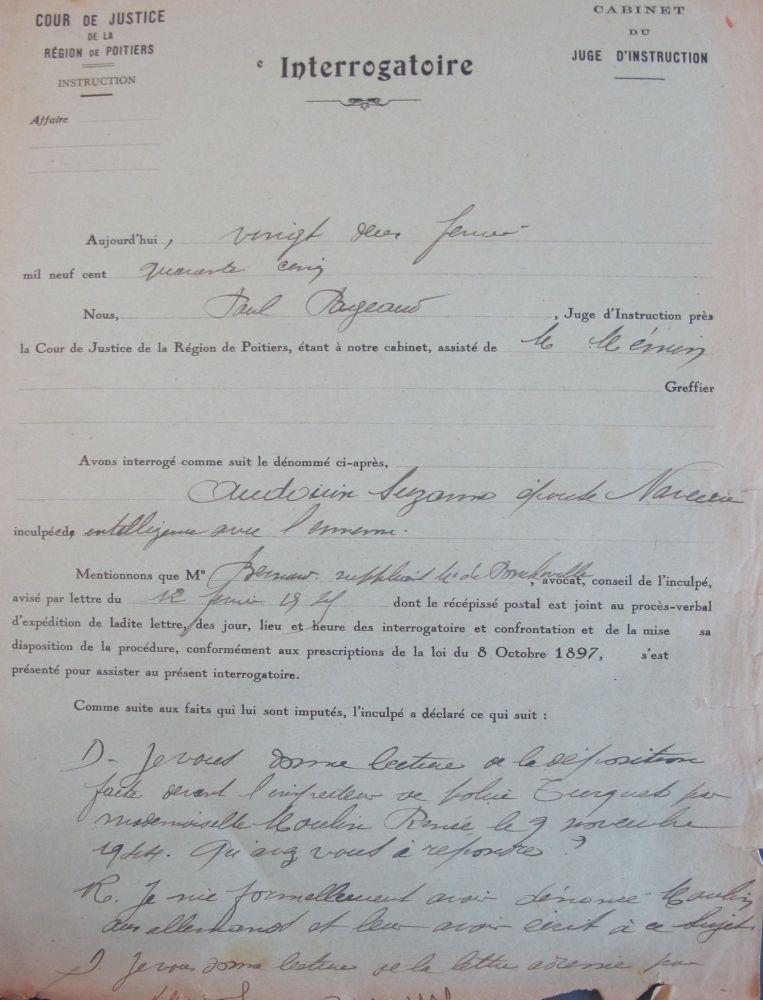 COUR DE JUSTICE
DE LA
RÉGION DE POITIERS
INSTRUCTION
Affaire
e Interrogatoire
CABINET
DU
JUGE D'INSTRUCTION
Aujourd'hui, vingt deux
mil neuf cent quarante cinq
Nous, Paul Pageaud, Juge d'Instruction près
la Cour de Justice de la Région de Poitiers, étant à notre cabinet, assisté de M
Greffier
Avons interrogé comme suit le dénommé ci-après,
Audouin Suzanne épouse
inculpé de intelligence avec l'ennemi.
Mentionnons que Me suppléant Me de, avocat, conseil de l'inculpé,
avisé par lettre du 12 1945 dont le récépissé postal est joint au procès-verbal
d'expédition de ladite lettre, des jour, lieu et heure des interrogatoire et confrontation et de la mise sa
disposition de la procédure, conformément aux prescriptions de la loi du 8 Octobre 1897, s'est
présenté pour assister au présent interrogatoire.
Comme suite aux faits qui lui sont imputés, l'inculpé a déclaré ce qui suit :
D - Je vous donne lecture de la déposition
faite devant l'inspecteur de police Turquet par
mademoiselle Moulin Renée, le 9 novembre
1944. Qu'avez vous à répondre ?
R. Je nie formellement avoir dénoncé Moulin
aux allemands et leur avoir écrit à ce sujet.
D. Je vous donne lecture de la lettre adressée par